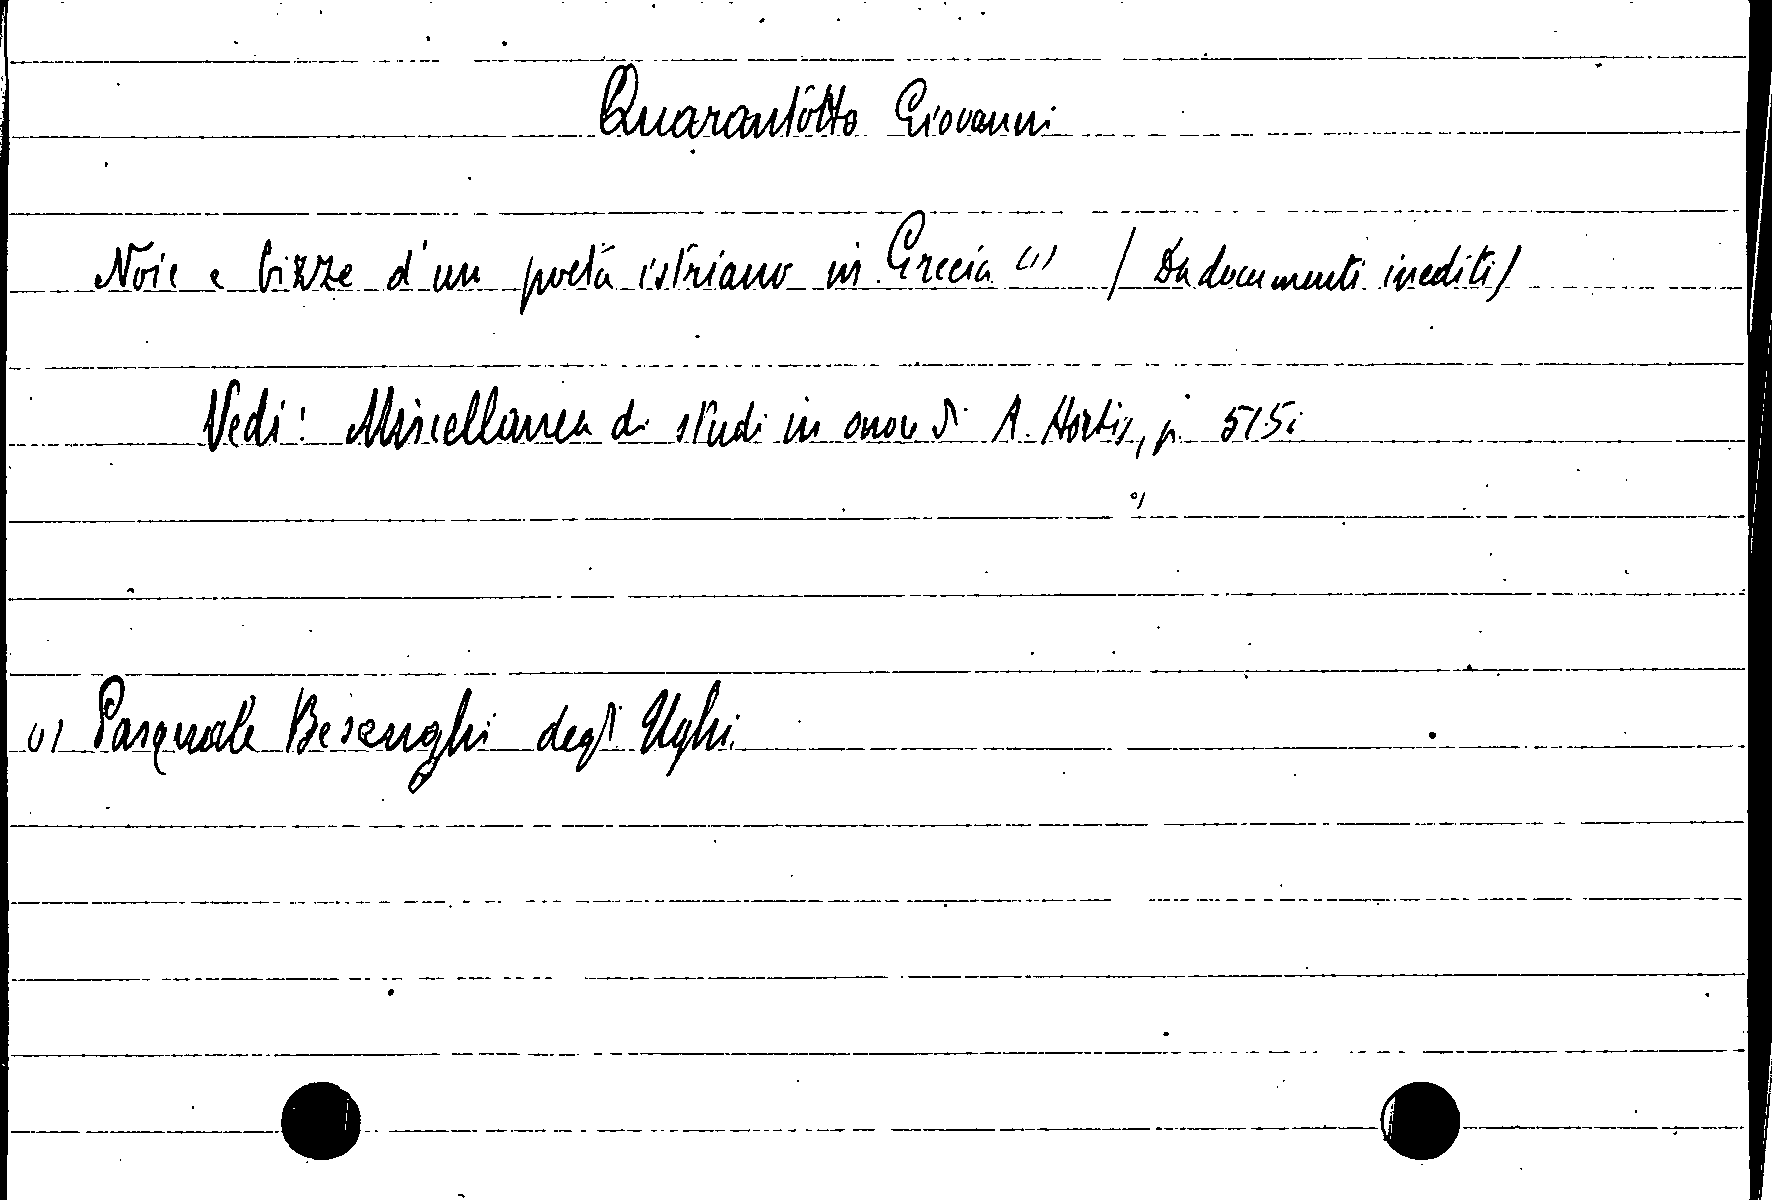 Quarantotto Giovanni
Noie e bizze d'un poeta istriano in Grecia (1) / Da documenti inediti /
Vedi: Miscellanea di studi in onore di A. Hortis, p. 515;
(1) Pasquale Besenghi degli Ughi.